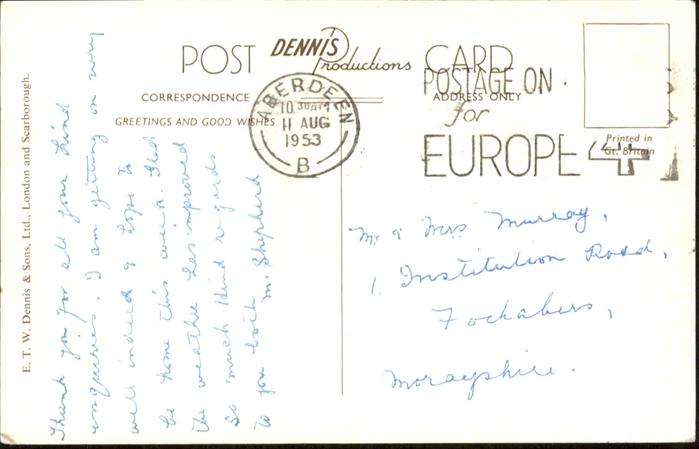 POST DENNIS Productions CARD
CORRESPONDENCE
ADDRESS ONLY
GREETINGS AND GOOD WISHES
ABERDEEN
10 30AM
11 AUG
1953
B
POSTAGE ON
for
EUROPE 4
Printed in
Gt. Britain
E. T. W. Dennis & Sons, Ltd., London and Scarborough.
Thank you for all your kind
enquiries. I am getting on very
well indeed & hope to
be home this week. Glad
the weather has improved
So much Kind regards
to you both M. Shepherd
Mr & Mrs Murray,
1. Institution Road,
Fochabers,
Morayshire.